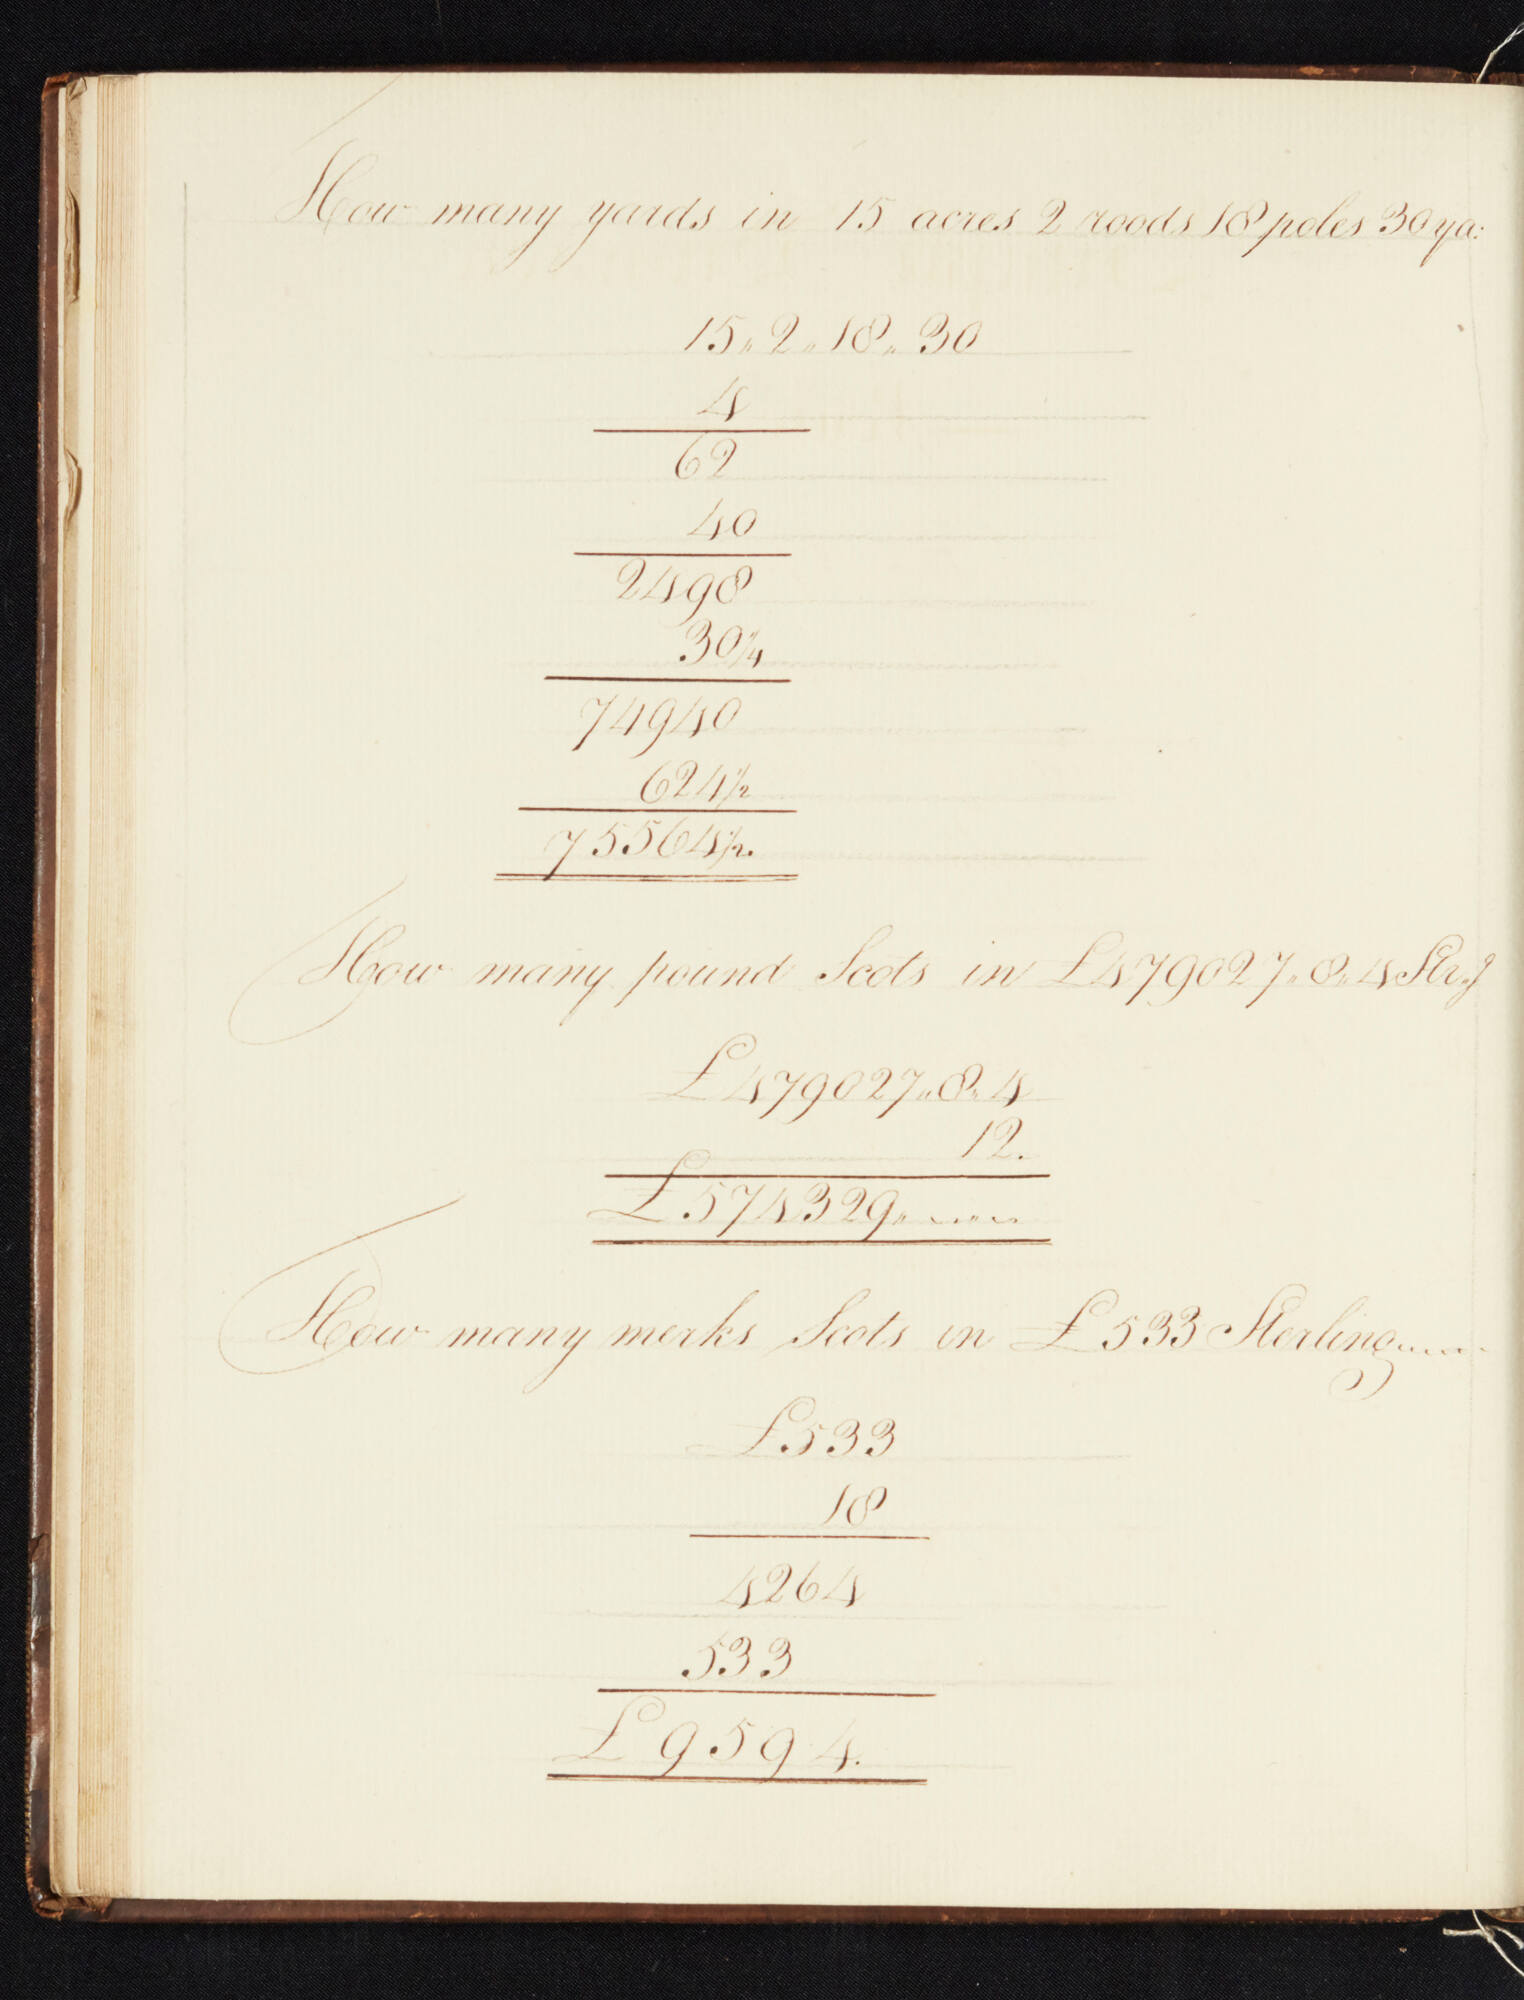 How many yards in 15 acres 2 roods 18 poles 30 ya:
15„2„18„30
4
62
40
2498
30 1/4
74940
624 1/2
75564 1/2.
How many pound Scots in £479027„8„4 Str.g
£479027„8„4
12.
£574329„
How many merks Scots in £533 Sterling
£533
18
4264
533
£9594.